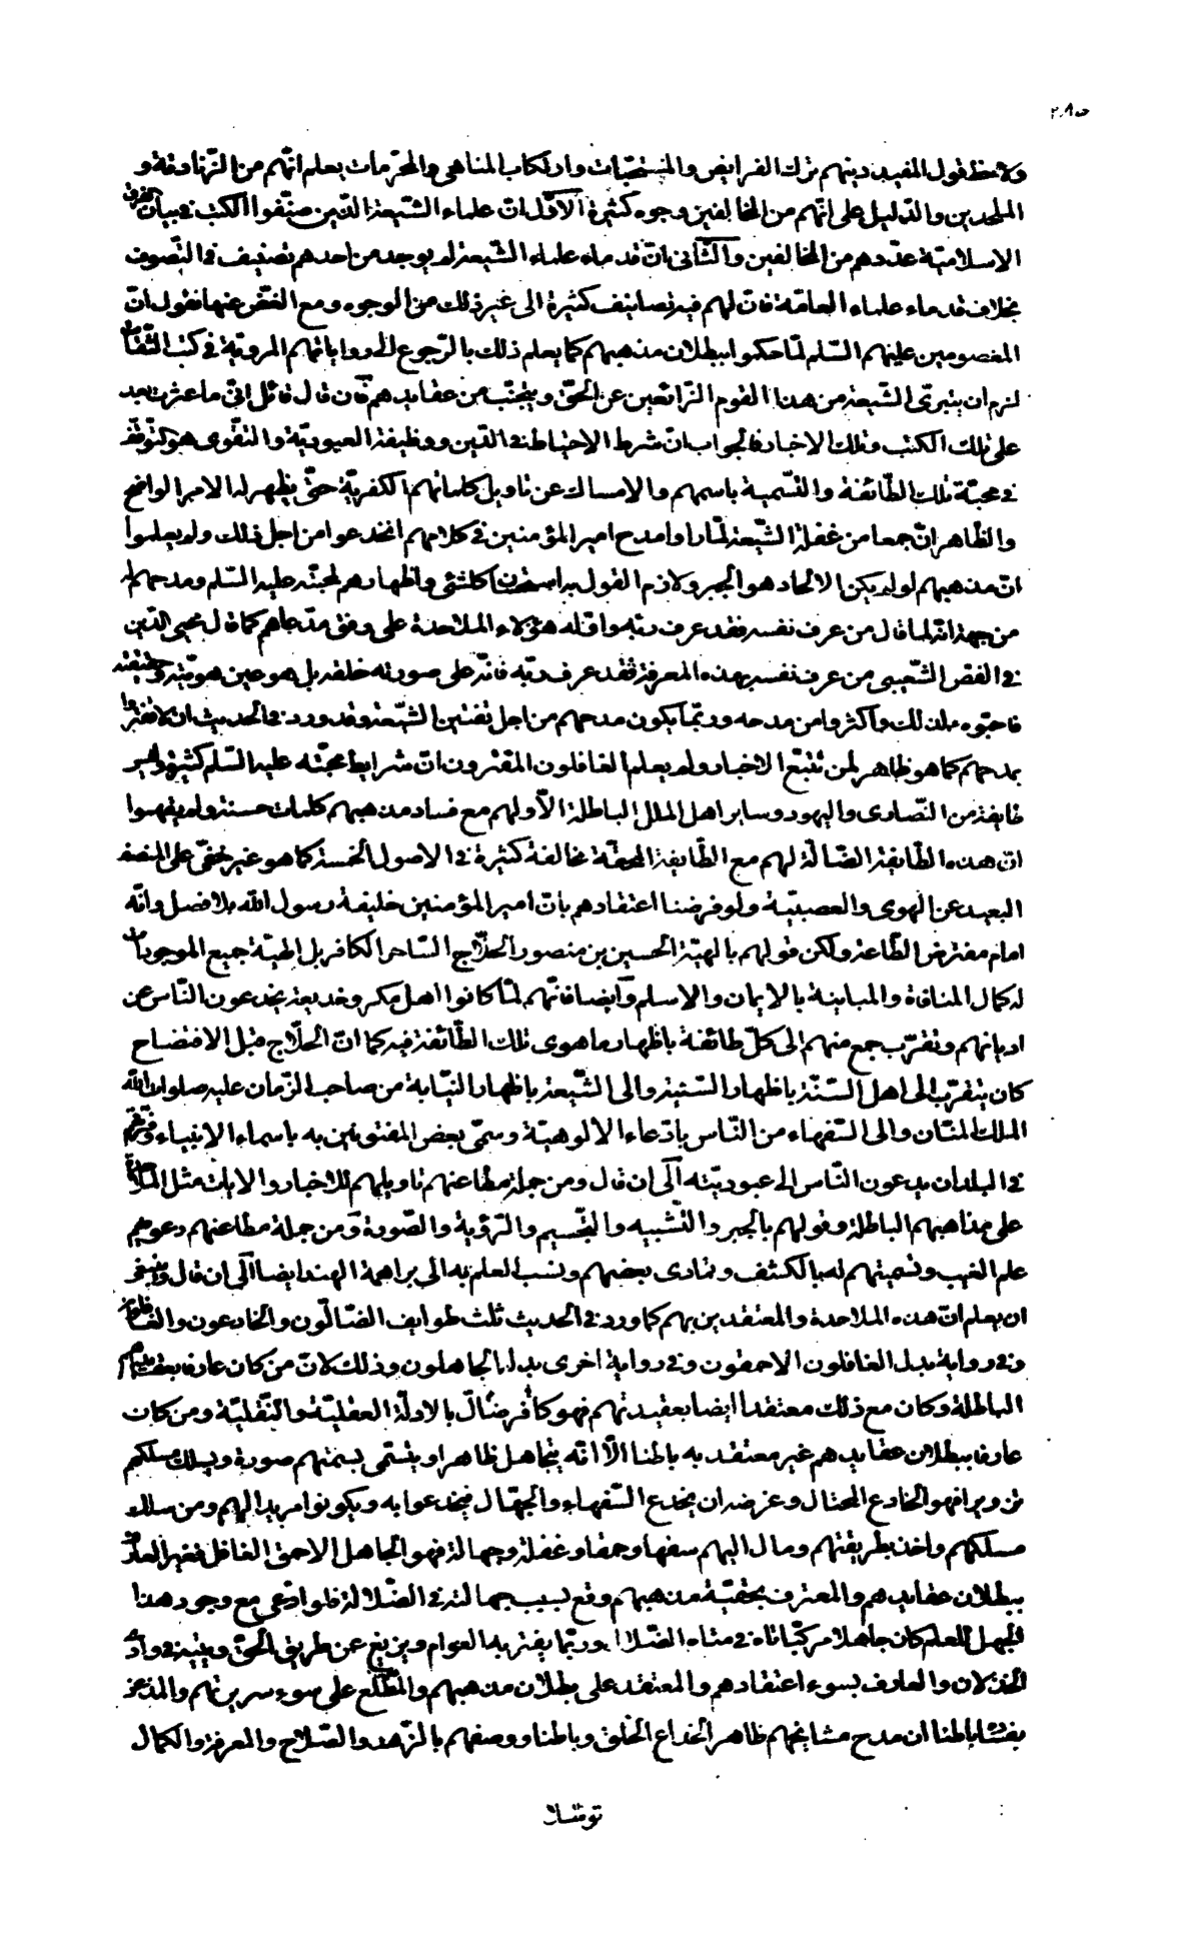 ٢٨٥
ولاحظ قول المفيد دينهم ترك الفرايض والمستحبّات وارتكاب المناهى والمحرّمات يعلم انّهم من الزّنادقة و
الملحدين والدّليل على انّهم من المخالفين وجوه كثيرة الاوّل انّ علماء الشّيعة الّذين صنّفوا الكتب فى بيان الفرق
الاسلاميّة عدّوهم من المخالفين والثّانى انّ قدماء علماء الشّيعة لم يوجد من احدهم تصنيف فى التّصوف
بخلاف قدماء علماء العامّة فانّ لهم فيه تصانيف كثيرة الى غير ذلك من الوجوه ومع الغضّ عنها نقول انّ
المعصومين عليهم السّلم لمّا حكموا ببطلان مذهبهم كما يعلم ذلك بالرّجوع الى رواياتهم المرويّة فى كتب الثّقات
لزم ان يتبرّى الشّيعة من هذا القوم الزّائغين عن الحقّ ويتجنّب من عقايدهم فان قال قائل انّى ما عثرت بعد
على تلك الكتب وتلك الاخبار فالجواب انّ شرط الاحتياط فى الدّين ووظيفة العبوديّة والتّقوى هو التوقّف
فى محبّة تلك الطّائفة والتّسمية باسمهم والامساك عن تاويل كلماتهم الكفريّة حتّى يظهر له الامر الواضح
والظّاهر انّ جمعا من غفلة الشّيعة لمّا راوا مدح امير المؤمنين فى كلامهم انخدعوا من اجل ذلك ولم يعلموا
انّ مذهبهم لو لم يكن الالحاد هو الجبر ولازم القول به استحسان كلّ شئ واظهارهم لمحبّته عليه السّلم ومدحهم له
من جهة انّه لما قال من عرف نفسه فقد عرف ربّه واوّله هؤلاء الملاحدة على وفق مدّعاهم كما قال محيى الدّين
فى الفصّ الشّعيبى من عرف نفسه بهذه المعرفة فقد عرف ربّه فانّه على صورته خلقه بل هو عين هويّته وحقيقته
فاحبّوه لذلك واكثروا من مدحه وربّما يكون مدحهم من اجل تفتين الشّيعة وقد ورد فى الحديث ان لا تغترّوا
بمدحهم كما هو ظاهر لمن تتبّع الاخبار ولم يعلم الغافلون المغترون انّ شرايط محبّته عليه السّلم كثيرة
طايفة من النّصارى واليهود وساير اهل الملل الباطلة الّا ولهم مع فساد مذهبهم كلمات حسنة ولم يفهموا
انّ هذه الطّايفة الضّالّة لهم مع الطّايفة المحقّة مخالفة كثيرة فى الاصول الخمسة كما هو غير خفىّ على المنصف
البعيد عن الهوى والعصبيّة ولو فرضنا اعتقادهم بانّ امير المؤمنين خليفة رسول الله بلا فصل وانّه
امام مفترض الطّاعة ولكن قولهم بالهيّة الحسين بن منصور الحلّاج السّاحر الكافر بل الهيّة جميع الموجودات
له كمال المنافاة والمباينة بالايمان والاسلم وايضا فانّهم لمّا كانوا اهل مكر وخديعة يخدعون النّاس عن
اديانهم وتقرّب جمع منهم الى كلّ طائفة باظهار ما هوى تلك الطّائفة فيه كما انّ الحلّاج قبل الافتضاح
كان يتقرّب الى اهل السّنّة باظهار التّسنّن والى الشّيعة باظهار النّيابة من صاحب الزّمان عليه صلوات الله
الملك المنّان والى السّفهاء من النّاس بادّعاء الالوهيّة وسمّى بعض المفتونين به باسماء الانبياء وفرّقهم
فى البلدان يدعون النّاس الى عبوديّته الى ان قال ومن جملة مطاعنهم تاويلهم للاخبار والايات مثل الملاحدة
على مذاهبهم الباطلة وقولهم بالجبر والتّشبيه والتّجسيم والرّؤية والصّورة ومن جملة مطاعنهم دعويهم
علم الغيب وتسميتهم له بالكشف وتمادى بعضهم ونسب العلم به الى براهمة الهند ايضا الى ان قال وينبغى
ان يعلم انّ هذه الملاحدة والمعتقدين بهم كما ورد فى الحديث ثلث طوايف الضّالّون والخادعون والغافلون
وفى رواية بدل الغافلون الاحمقون وفى رواية اخرى بدله الجاهلون وذلك لانّ من كان عارفا بعقيدتهم
الباطلة وكان مع ذلك معتقدا ايضا بعقيدتهم فهو كافر ضالّ بالادلّة العقليّة والنّقليّة ومن كان
عارفا ببطلان عقايدهم غير معتقد به باطنا الّا انّه يتجاهل ظاهرا ويتسمّى بسمتهم صورة ويسلك مسلكهم
تزويرا فهو الخادع المحتال وغرضه ان يخدع السّفهاء والجهّال فيخدعوا به ويكونوا مريدا لهم ومن سلك
مسلكهم واخذ بطريقتهم ومال اليهم سفها وحمقا وغفلة وجهالة فهو الجاهل الاحمق الغافل فغير العارف
ببطلان عقايدهم والمعترف بحقيّة مذهبهم وقع بسبب جهالته فى الضّلالة فلو ادّعى مع وجود هذا
الجهل العلم كان جاهلا مركّبا تاه فى متاه الضّلال وربّما يغتر به العوام ويزيغ عن طريق الحقّ ويتيه فى وادى
الخذلان والعارف بسوء اعتقادهم والمعتقد على بطلان مذهبهم والمطّلع على سوء سريرتهم والمذعن
بفسقهم باطنا ان مدح مشايخهم ظاهرا لخداع الخلق وباطنا ووصفهم بالزّهد والصّلاح والمعرفة والكمال
توسّلا